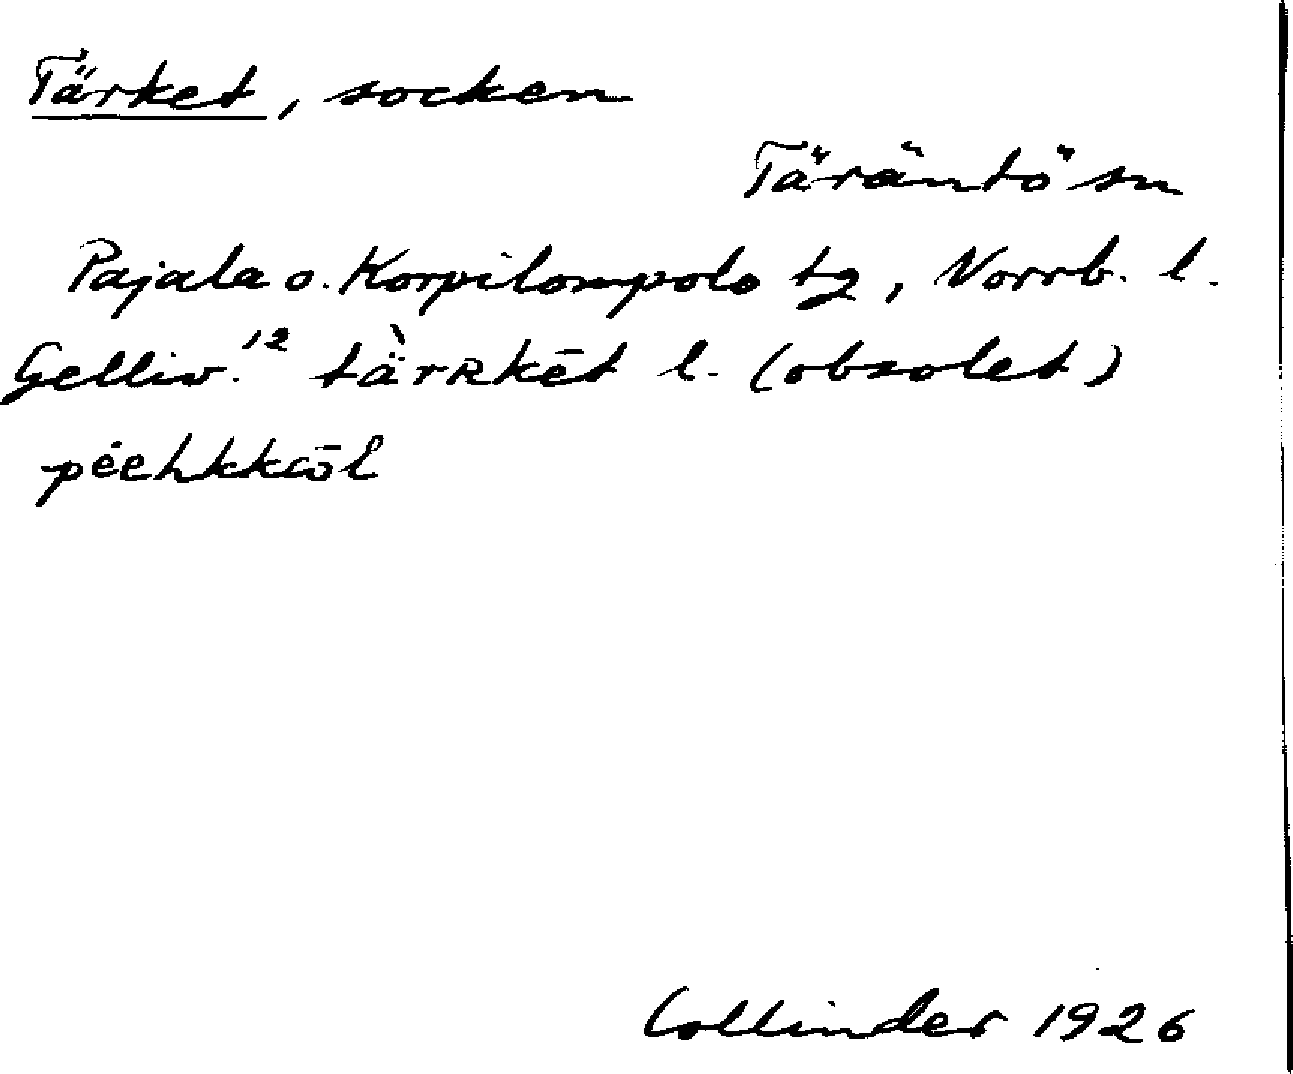 Tärket, socken
Täräntö sn
Pajala o. Korpilompolo tg, Norrb. l.
Gelliv.¹² tä̀rRkēt l. (obsolet)
péehkkōl
Collinder 1926